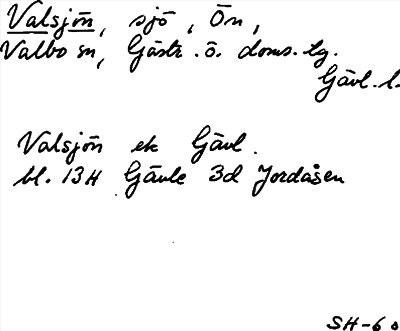 Valsjön, sjö, Ön,
Valbo sn, Gästr. ö. doms. tg.
Gävl. l.
Valsjön ek Gävl.
bl. 13H Gävle 3d Jordåsen
SH-6